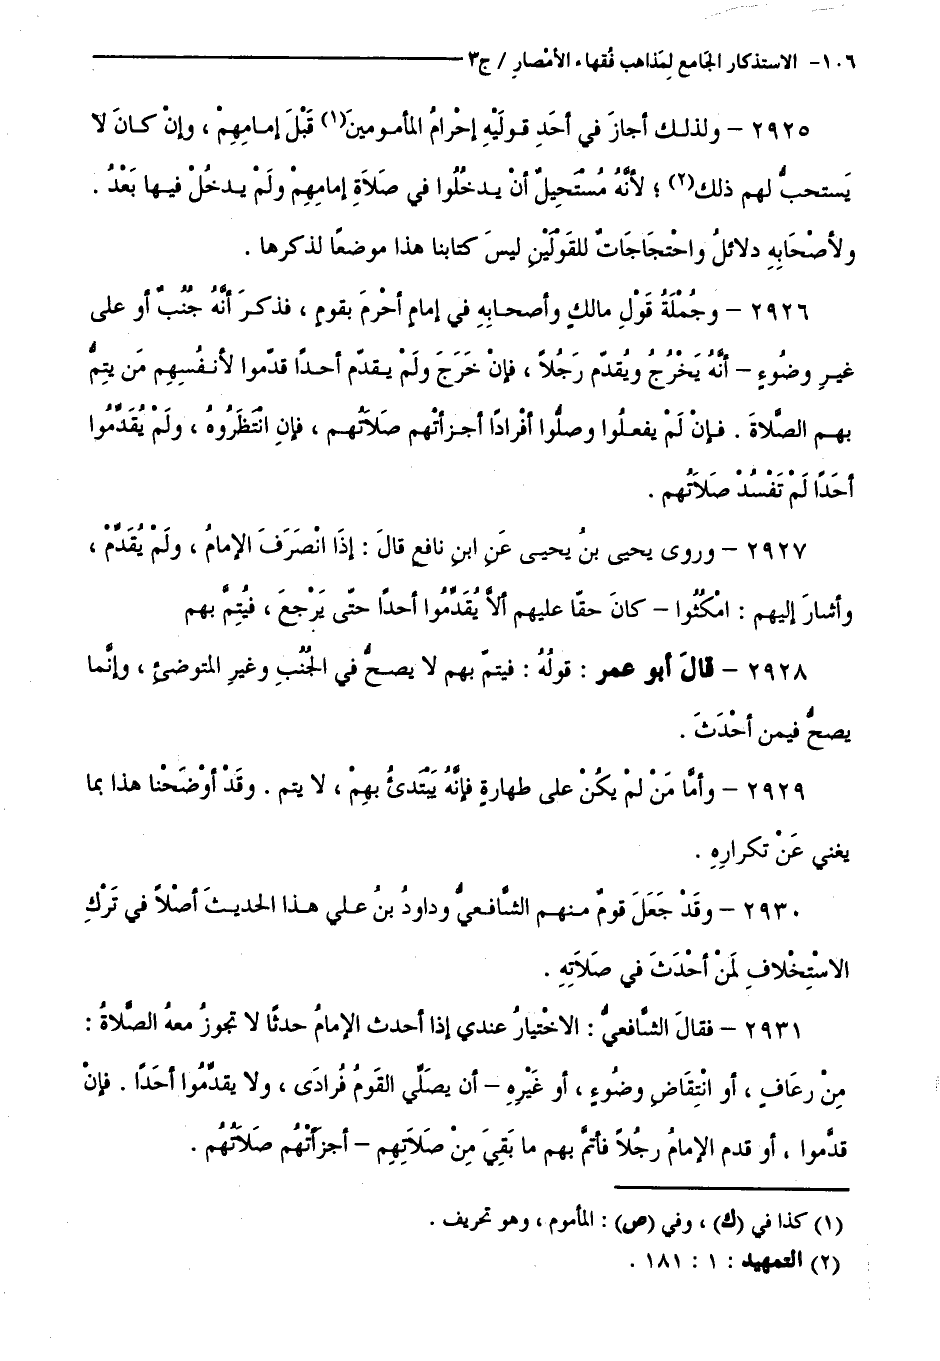 ١٠٦- الاستذكار الجَامع لِمَذاهب فُقهاء الأمْصارِ / ج٣
٢٩٢٥ – ولذلك أجازَ في أحَدِ قوليْهِ إحْرامُ المأمومينَ(١) قَبْلَ إمامِهِمْ ، وإنْ كانَ لا
يَستحبُّ لهم ذلك(٢) ؛ لأنَّهُ مُسْتَحِيلٌ أنْ يدخُلُوا في صَلَاةِ إمامِهِمْ ولَمْ يدخُلْ فيها بَعْدُ .
ولأصْحَابِهِ دلائلُ واحْتجَاجَاتٌ للقَوْلَيْنِ ليسَ كتابنا هذا موضعًا لذكرها .
٢٩٢٦ – وجُمْلَةُ قَوْلِ مالكٍ وأصحابِهِ في إمامٍ أحْرمَ بقومٍ ، فذكرَ أنَّهُ جُنُبٌ أو على
غيرِ وضُوءٍ – أنَّهُ يَخْرُجُ ويُقدّم رَجُلاً ، فإنْ خَرَجَ ولَمْ يقدّم أحدًا قدّموا لأنفُسِهِم مَن يتِمُّ
بهم الصَّلاةَ . فإنْ لَمْ يفعلُوا وصلُّوا أفْرادًا أجزأتْهم صَلَاتُهم ، فإنِ انْتَظَرُوهُ ، ولَمْ يُقَدِّمُوا
أحَدًا لَمْ تَفْسُدْ صَلاَتُهم .
٢٩٢٧ – وروى يحيى بنُ يحيى عَنِ ابنِ نافعٍ قالَ : إذَا انْصَرَفَ الإمامُ ، ولَمْ يُقَدِّمْ ،
وأشارَ إليهم : امْكُثُوا – كانَ حقّا عليهم ألاَّ يُقَدِّمُوا أحدًا حتّى يَرْجعَ ، فيُتِمَّ بهم
٢٩٢٨ – قالَ أبو عمر : قولُهُ : فيتمّ بهم لا يصحُّ في الجُنُبِ وغيرِ المتوضئِ ، وإنَّما
يصحُّ فيمن أحْدَثَ .
٢٩٢٩ – وأمَّا مَنْ لَمْ يكُنْ على طهارةٍ فإنَّهُ يَبْتَدئُ بهِمْ ، لا يتم . وقَدْ أوْضَحْنا هذا بما
يغني عَنْ تكرارِهِ .
٢٩٣٠ – وقَدْ جَعَلَ قومٌ منهم الشَّافعيُّ وداودُ بنُ علي هذا الحديثَ أصْلاً في تَرْكِ
الاسْتِخْلافِ لَمَنْ أحْدَثَ في صَلَاتِهِ .
٢٩٣١ – فقالَ الشَّافعيُّ : الاخْتيارُ عندي إذا أحدث الإمامُ حدثًا لا تجوزُ معهُ الصَّلاةُ :
مِنْ رعَافٍ ، أو انْتِقَاضِ وضُوءٍ ، أو غَيْرِهِ – أن يصَلّي القَومُ فُرادَى ، ولا يقدّمُوا أحَدًا . فإنْ
قدَّموا ، أو قدم الإمامُ رجُلاً فأتمَّ بهم ما بَقيَ مِنْ صَلَاتِهِم – أجزأتْهُم صَلَاتُهُم .
(١) كذا في (ك) ، وفي (ص) : المأموم ، وهو تحريف .
(٢) التمهيد : ١ : ١٨١ .